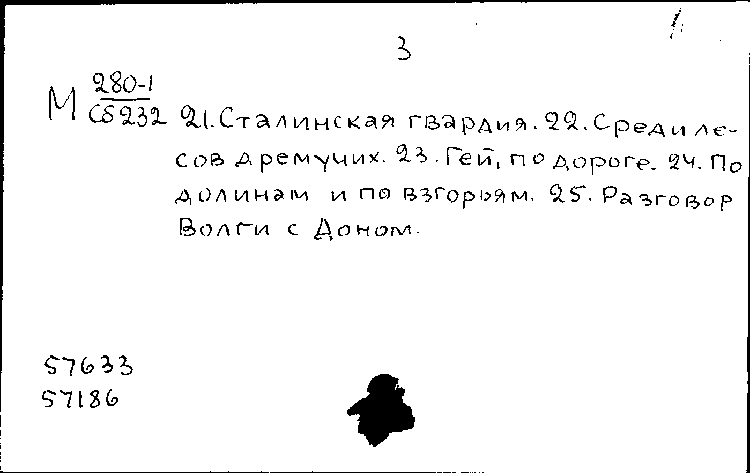 3
М 280-1
Сб232 21. Сталинская гвардия. 22. Среди ле-
сов дремучих. 23. Гей, по дороге. 24. По
долинам и по взгорьям. 25. Разговор
Волги с Доном.
57633
57186